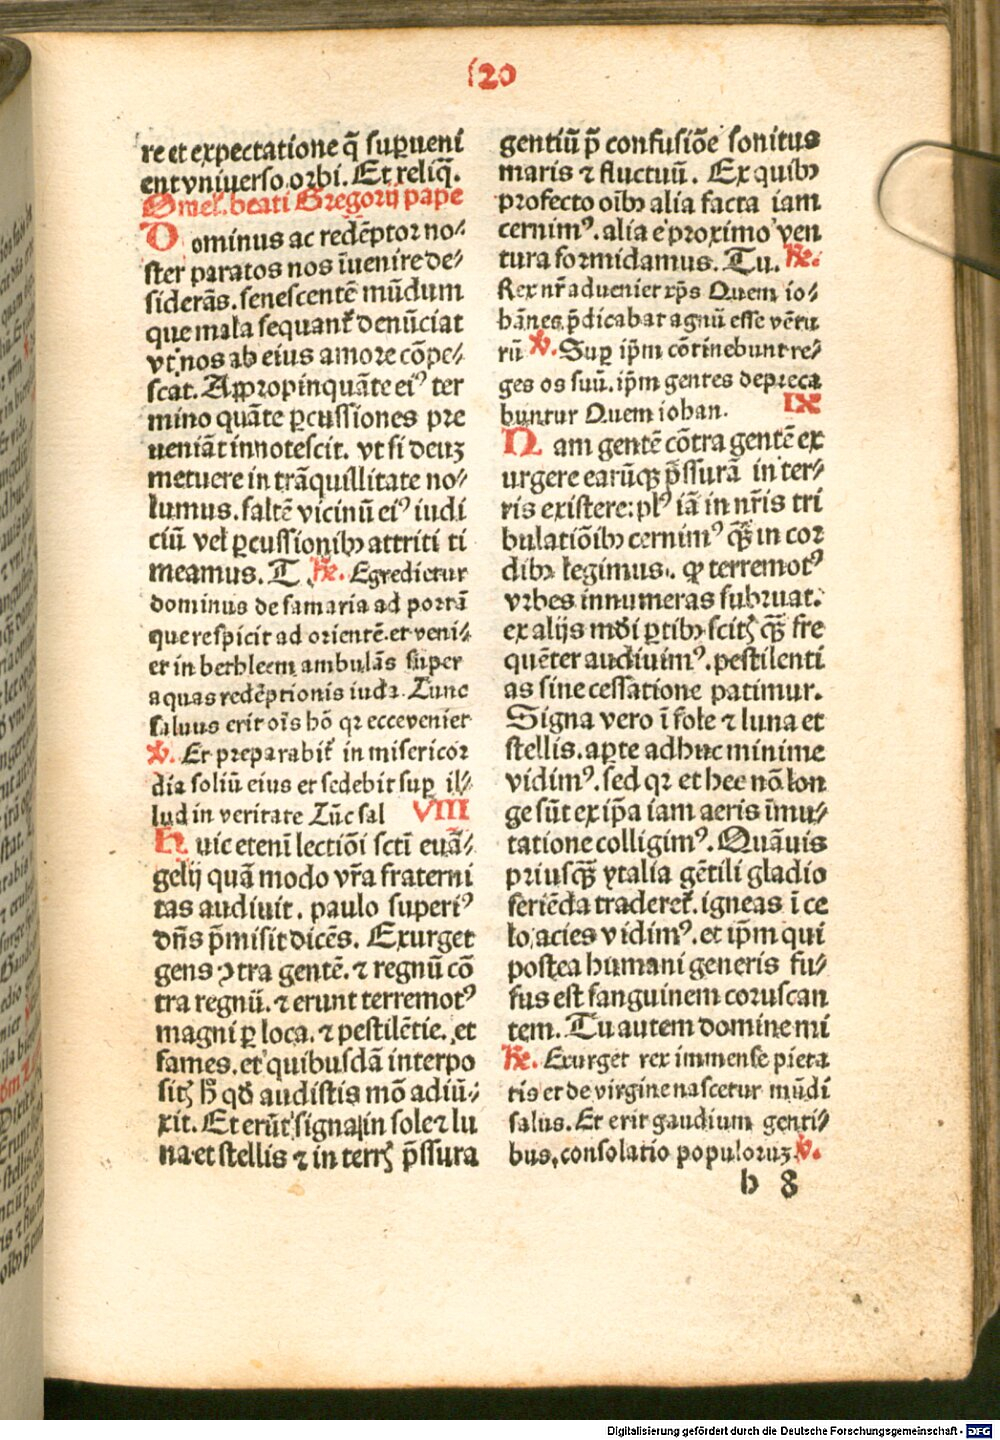 120
re et expectatione q̃ suꝑueni
ent vniuerso orbi. Et reliq̃.
Omel. beati Gregorij pape
Dominus ac redẽptor no-
ster paratos nos ĩuenire de-
siderãs. senescentẽ mũdum
que mala sequant̃ denũciat
vt nos ab eius amore cõpe-
scat. Appropinquãte eiꝰ ter
mino quãte ꝑcussiones pre
ueniãt innotescit. vt si deuʒ
metuere in trãquillitate no-
lumus. saltẽ vicinũ eiꝰ iudi
ciũ vel ꝑcussionibꝫ attriti ti
meamus. T ℟. Egredietur
dominus de samaria ad portã
que respicit ad orientẽ. et veni-
et in bethleem ambulãs super
aquas redẽptionis iude. Tunc
saluus erit oĩs hõ qr ecce veniet
℣. Et preparabit̃ in misericor
dia soliũ eius et sedebit suꝑ il-
lud in veritate Tũc sal VIII
Huic eteni lectiõi scti euã-
gelij quã modo vr̃a fraterni
tas audiuit. paulo superiꝰ
dñs p̃misit dicẽs. Exurget
gens ꝯtra gentẽ. ⁊ regnũ cõ
tra regnũ. ⁊ erunt terremotꝰ
magni ꝑ loca. ⁊ pestilẽtie. et
fames. et quibusdã interpo
sitꝭ h̃ qđ audistis mõ adiũ-
xit. Et erũt signa in sole ⁊ lu
na et stellis ⁊ in terrꝭ p̃ssura
gentiũ p̃ confusiõe sonitus
maris ⁊ fluctuũ. Ex quibꝫ
profecto oĩbꝫ alia facta iam
cernimꝰ. alia e proximo ven
tura formidamus. Tu. ℟.
Rex nr̃ adueniet xp̃s Quem io-
hãnes p̃dicabat agnũ esse vẽtu
rũ ℣. Suꝑ ip̃m cõtinebunt re-
ges os suũ. ip̃m gentes depreca
buntur Quem iohan. IX
Nam gentẽ cõtra gentẽ ex
urgere earũqꝫ p̃ssurã in ter-
ris existere: plꝰ iã in nr̃is tri
bulatiõibꝫ cernimꝰ qꝫ̃ in cor
dibꝫ legimus. ꝙ terremotꝰ
vrbes innumeras subruat.
ex alijs mũdi ꝑtibꝫ scitꝭ qꝫ̃ fre
quẽter audiuimꝰ. pestilenti
as sine cessatione patimur.
Signa vero ĩ sole ⁊ luna et
stellis. aꝑte adhuc minime
vidimꝰ. sed qr et hec nõ lon
ge sũt ex ip̃a iam aeris ĩmu-
tatione colligimꝰ. Quãuis
priusqꝫ̃ ytalia gẽtili gladio
feriẽda traderet̃. igneas ĩ ce
lo acies vidimꝰ. et ip̃m qui
postea humani generis fu-
sus est sanguinem coruscan
tem. Tu autem domine mi
℟. Exurget rex immense pieta
tis et de virgine nascetur mũdi
salus. Et erit gaudium genti-
bus, consolatio populoruʒ ℣.
b 8
Digitalisierung gefördert durch die Deutsche Forschungsgemeinschaft - DFG